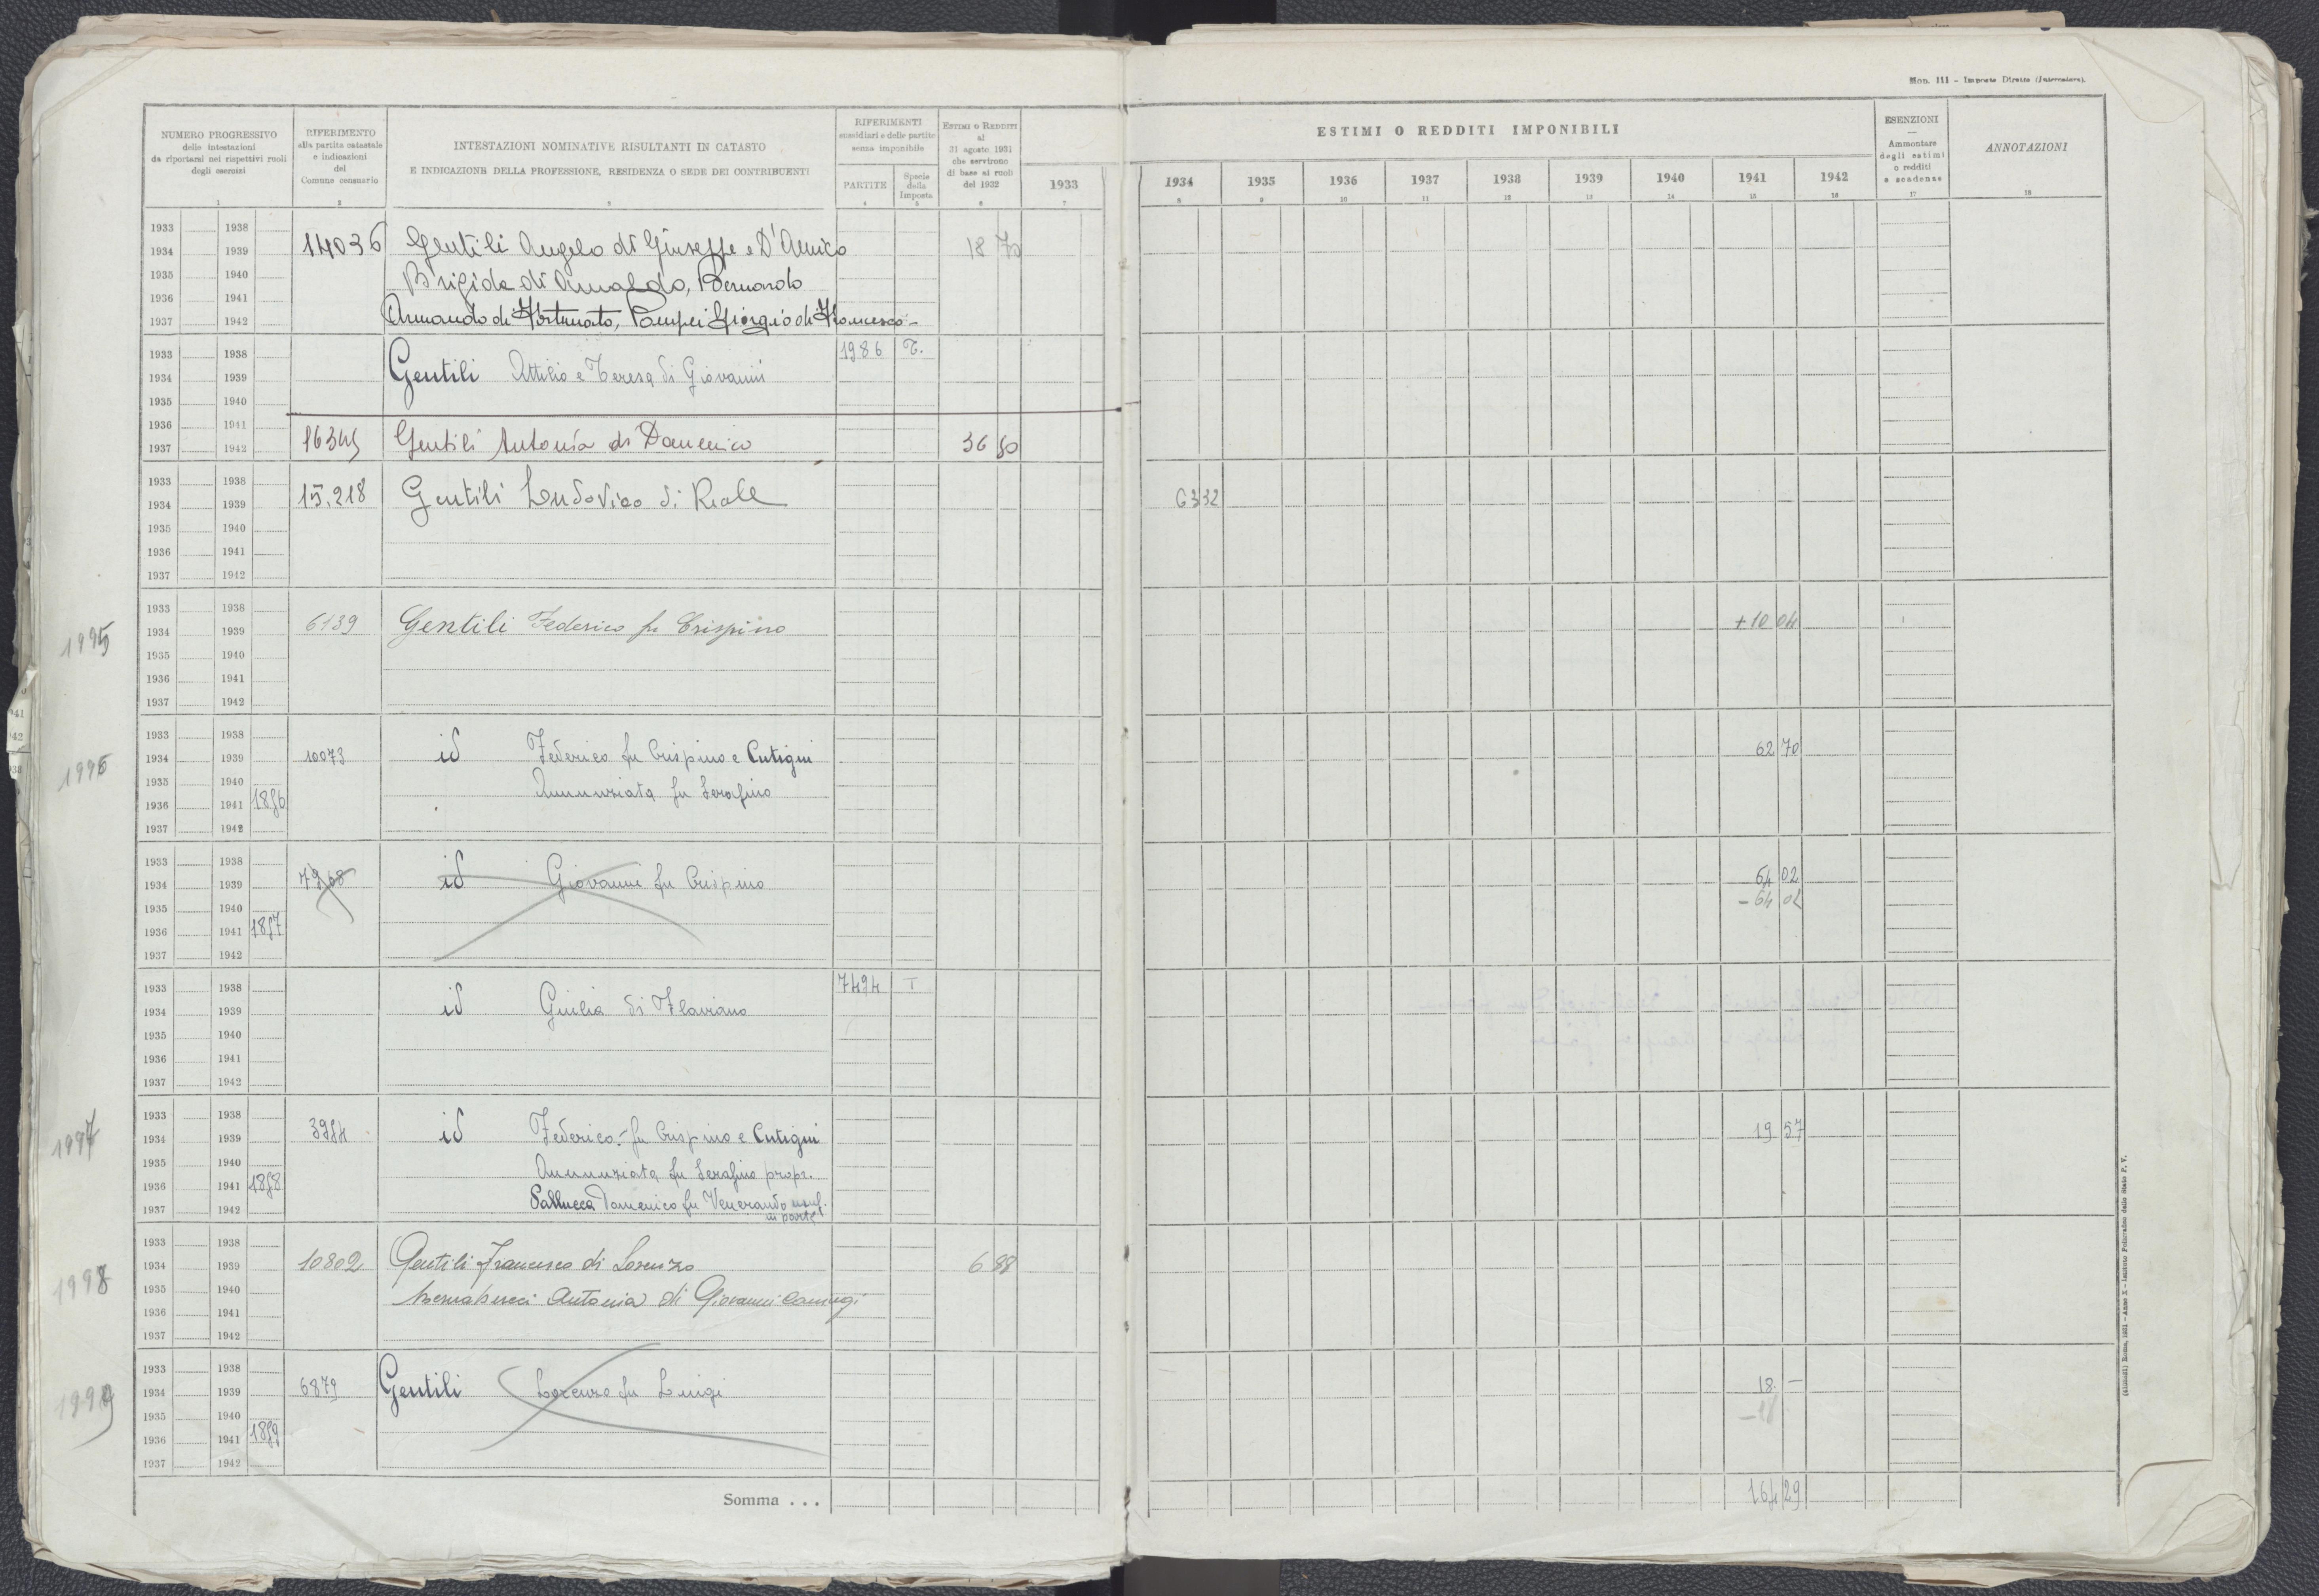 Mod. 111 - Imposte Dirette (Intercalare).
NUMERO PROGRESSIVO
delle intestazioni
da riportarsi nei rispettivi ruoli
degli esercizi
RIFERIMENTO
alla partita catastale
e indicazioni
del
Comune censuario
INTESTAZIONI NOMINATIVE RISULTANTI IN CATASTO
E INDICAZIONE DELLA PROFESSIONE, RESIDENZA O SEDE DEI CONTRIBUENTI
RIFERIMENTI
sussidiari e delle partite
senza imponibile
PARTITE
Specie
della
Imposta
ESTIMI O REDDITI
al
31 agosto 1931
che servirono
di base ai ruoli
del 1932
ESTIMI O REDDITI IMPONIBILI
1933 1934 1935 1936 1937 1938 1939 1940 1941 1942
ESENZIONI
—
Ammontare
degli estimi
o redditi
e scadenze
ANNOTAZIONI
1 2 3 4 5 6 7 8 9 10 11 12 13 14 15 16 17 18
1933 1938
1934 1939 14036 Gentili Angelo di Giuseppe e D'Amico 18 70
1935 1940 Brigida di Arnaldo, Bernardo
1936 1941
1937 1942 Armando di Fortunato, Pompei Giorgio di Francesco -
1933 1938 1986 T.
1934 1939 Gentili Attilio e Teresa di Giovanni
1935 1940
1936 1941
1937 1942 16345 Gentili Antonia di Domenico 36 80
1933 1938
1934 1939 15.218 Gentili Ludovico di Reale 63 32
1935 1940
1936 1941
1937 1942
1933 1938
1995 1934 1939 6139 Gentili Federico fu Crispino +10 04
1935 1940
1936 1941
1937 1942
1933 1938
1996 1934 1939 10073 id Federico fu Crispino e Cutigni 62 70
1935 1940 Annunziata fu Serafino
1936 1941 1856
1937 1942
1933 1938
1934 1939 7968 id Giovanni fu Crispino 64 02
1935 1940 - 64 02
1936 1941 1857
1937 1942
1933 1938 7494 T
1934 1939 id Giulia di Flaviano
1935 1940
1936 1941
1937 1942
1933 1938
1997 1934 1939 3984 id Federico fu Crispino e Cutigni 19 57
1935 1940 Annunziata fu Serafino propr.
1936 1941 1858
1937 1942 Pallucca Domenico fu Venerando usuf.
in parte
1933 1938
1998 1934 1939 10802 Gentili Francesco di Lorenzo 6 88
1935 1940 Bernabucci Antonia di Giovanni coniugi
1936 1941
1937 1942
1933 1938
1999 1934 1939 6879 Gentili Lorenzo fu Luigi 18 -
1935 1940 - 18
1936 1941 1859
1937 1942
Somma . . . 164 29